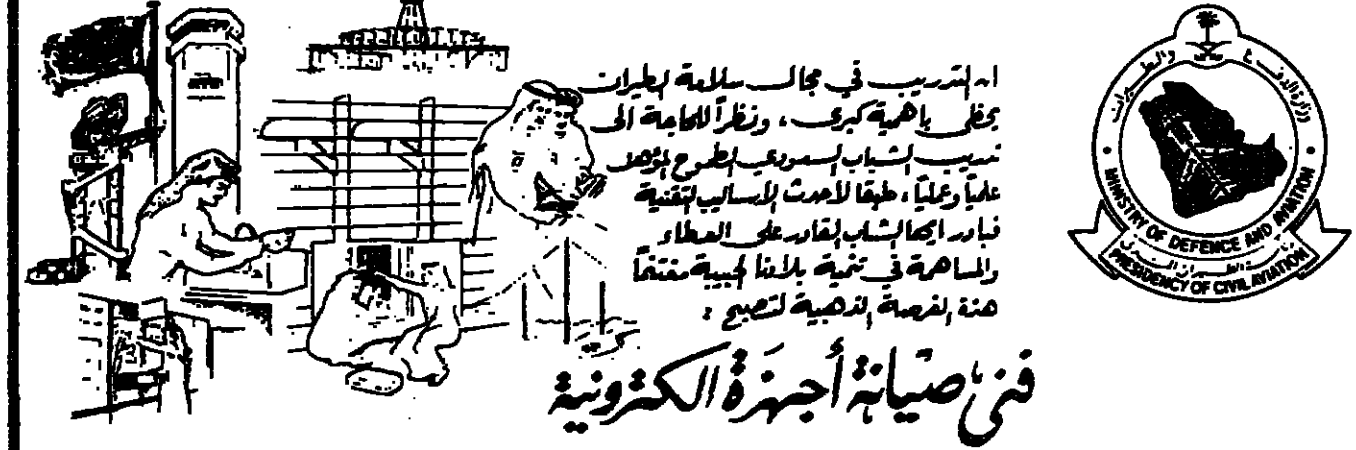 ان التدريب في مجال سلامة الطيران
يحظى باهمية كبرى ، ونظراً للحاجة الى
تدريب الشباب السعودي الطموح المؤهل
علمياً وعملياً ، طبقا لأحدث الأساليب التقنية
فبادر ايها الشاب القادر على العطاء
والمساهمة في تنمية بلادنا الحبيبة مغتنماً
هذة الفرصة الذهبية لتصبح :
فني صيانة أجهزة الكترونية
وزارة الدفاع والطيران
MINISTRY OF DEFENCE AND AVIATION
الطيران المدني
PRESIDENCY OF CIVIL AVIATION